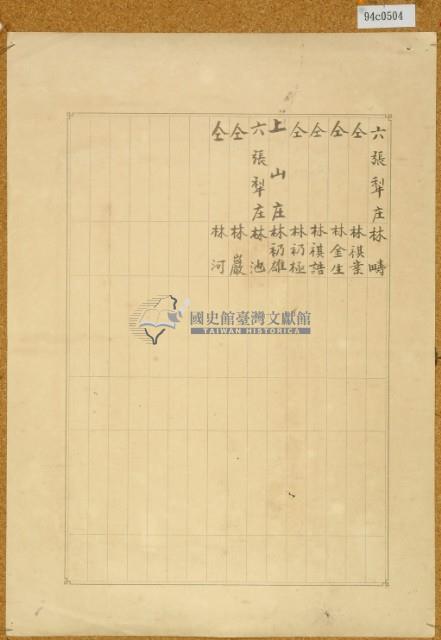 94c0504
六張犁庄林 疇
仝 林祺業
仝 林金生
仝 林祺諳
仝 林礽極
上山庄林礽雄
六張犁庄林 池
仝 林 巖
仝 林 河
國史館臺灣文獻館
TAIWAN HISTORICA